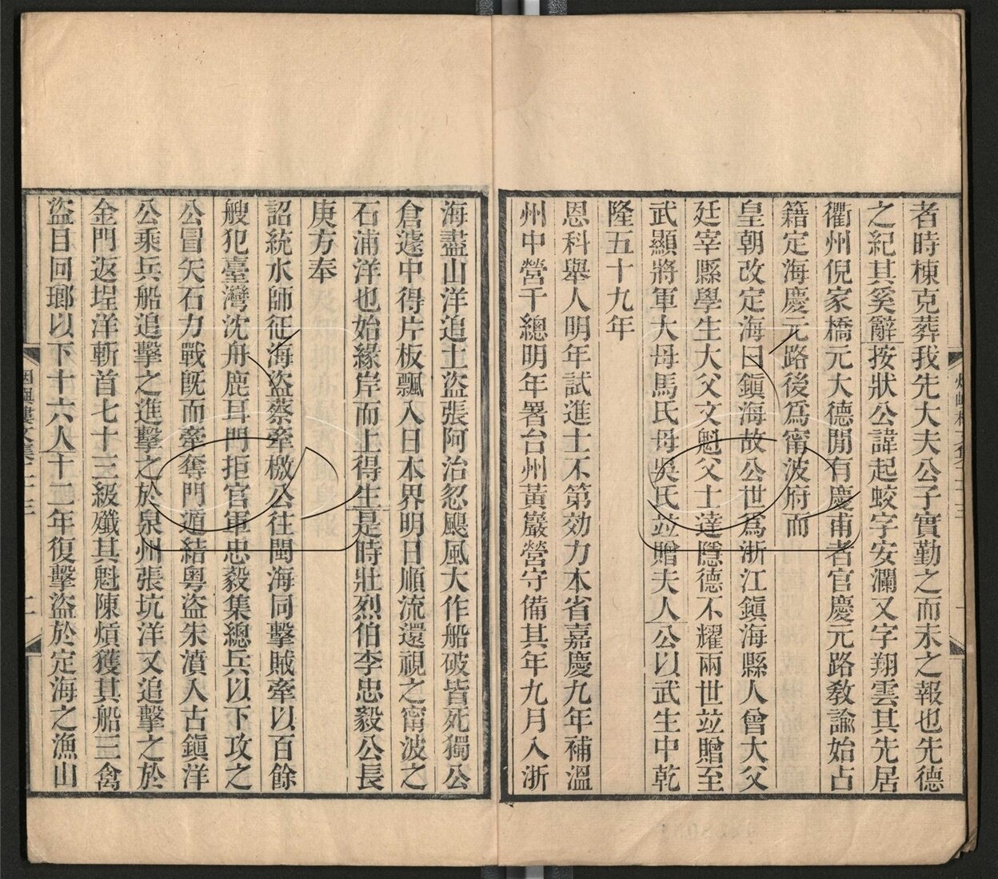 者時棟克葬我先大夫公子實勤之而未之報也先德
之紀其奚辭按狀公諱起蛟字安瀾又字翔雲其先居
衢州倪家橋元大德閒有慶甫者官慶元路敎諭始占
籍定海慶元路後爲甯波府而
皇朝改定海曰鎭海故公世爲浙江鎭海縣人曾大父
廷宰縣學生大父文魁父士達隱德不耀兩世並贈至
武顯將軍大母馬氏母吳氏並贈夫人公以武生中乾
隆五十九年
恩科舉人明年試進士不第効力本省嘉慶九年補溫
州中營千總明年署台州黃巖營守備其年九月入浙
海盡山洋追土盜張阿治忽颶風大作船破皆死獨公
倉遽中得片板飄入日本界明日順流還視之甯波之
石浦洋也始緣岸而上得生是時壯烈伯李忠毅公長
庚方奉
詔統水師征海盜蔡牽檄公往閩海同擊賊牽以百餘
艘犯臺灣沈舟鹿耳門拒官軍忠毅集總兵以下攻之
公冒矢石力戰旣而牽奪門遁結粵盜朱濆入古鎭洋
公乘兵船追擊之進擊之於泉州張坑洋又追擊之於
金門返埕洋斬首七十三級殲其魁陳煩獲其船三禽
盜目回瑯以下十六人十二年復擊盜於定海之漁山
烟嶼樓文集二十三
二